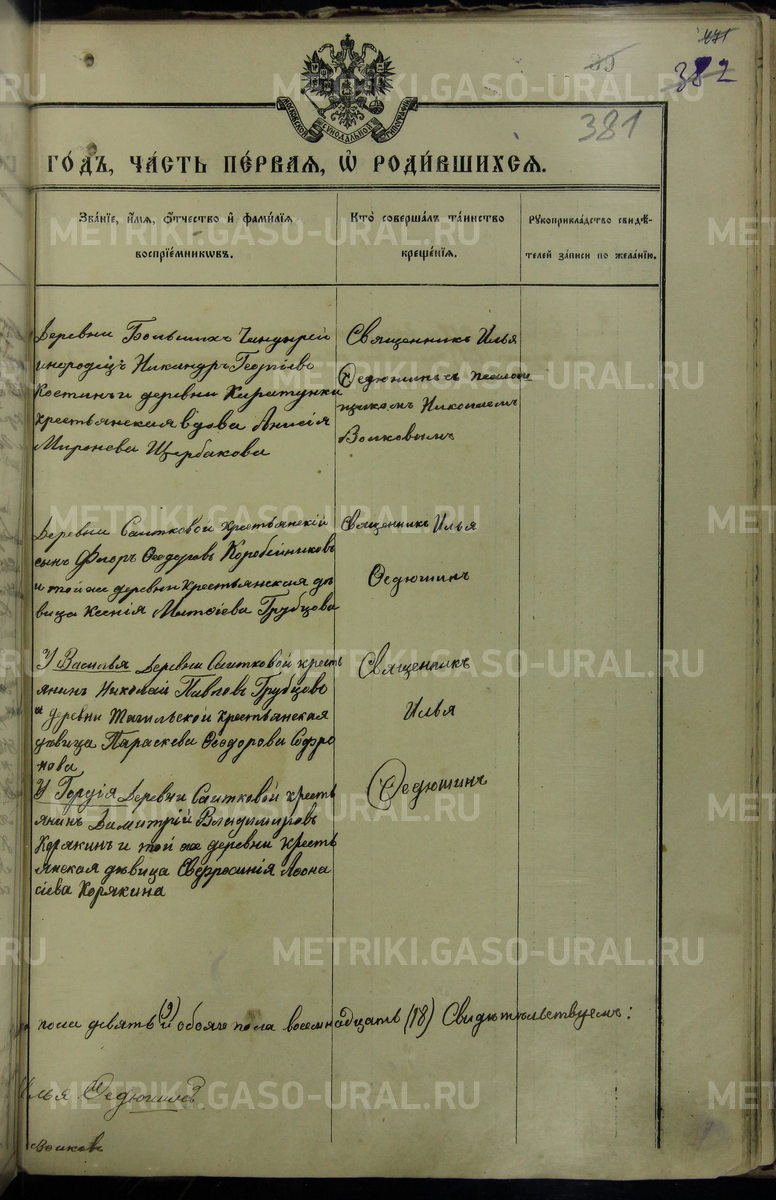 471
35
382
381
МОСКОВСКОЙ СѴНОДАЛЬНОЙ ТИПОГРАФІИ
ГО́ДЪ, ЧА́СТЬ ПЕ́РВАЯ, Ѡ҆ РОДИ́ВШИХСЯ.
Зва́нїе, и҆́мѧ, ѻ҆́тчество и҆ фами́лїѧ
воспрїе́мникѡвъ.
Кто̀ соверша́лъ та́инство
креще́нїѧ.
Рꙋкоприкла́дство свидѣ́-
телей за́писи по жела́нїю.
Деревни Большихъ
инородецъ Никандръ Георгіевъ
Костинъ и деревни
крестьянская вдова Анисія
Миронева Щербакова
Священникъ Илья
Ѳедюшинъ съ псалом
щикомъ Николаемъ
Волковымъ
Деревни Саитковой крестьянскій
сынъ Флоръ Ѳеодоровъ Коробейниковъ
и той же деревни крестьянская дѣ
вица Ксенія Матѳіева Грубцова
Священникъ Илья
Ѳедюшинъ
У Василья Деревни Саитковой кресть
янинъ Николай Павловъ Грубцовъ
и деревни Тагильской крестьянская
дѣвица Параскева Ѳеодорова Софро
нова
Священникъ
Илья
Ѳедюшинъ
У Гордія Деревни Саитковой кресть
янинъ Димитрій Владимировъ
Корякинъ и той же деревни кресть
янская дѣвица Евфросинія Аѳона
сіева Корякина
пола девять (9) и обоего пола восемнадцать (18) Свидѣтельствуемъ:
Илья Ѳедюшинъ
Волковъ
METRIKI.GASO-URAL.RU